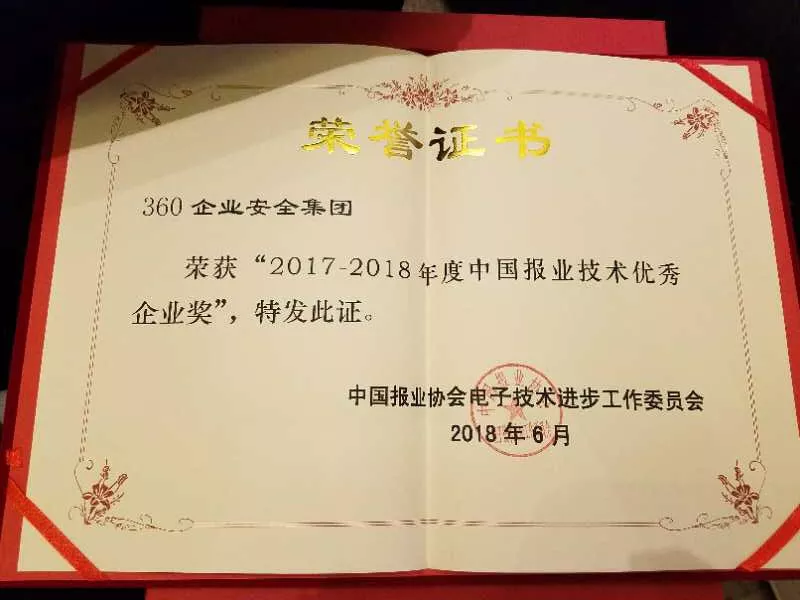 荣誉证书
360企业安全集团
荣获“2017-2018年度中国报业技术优秀
企业奖”,特发此证。
中国报业协会电子技术进步工作委员会
2018年6月